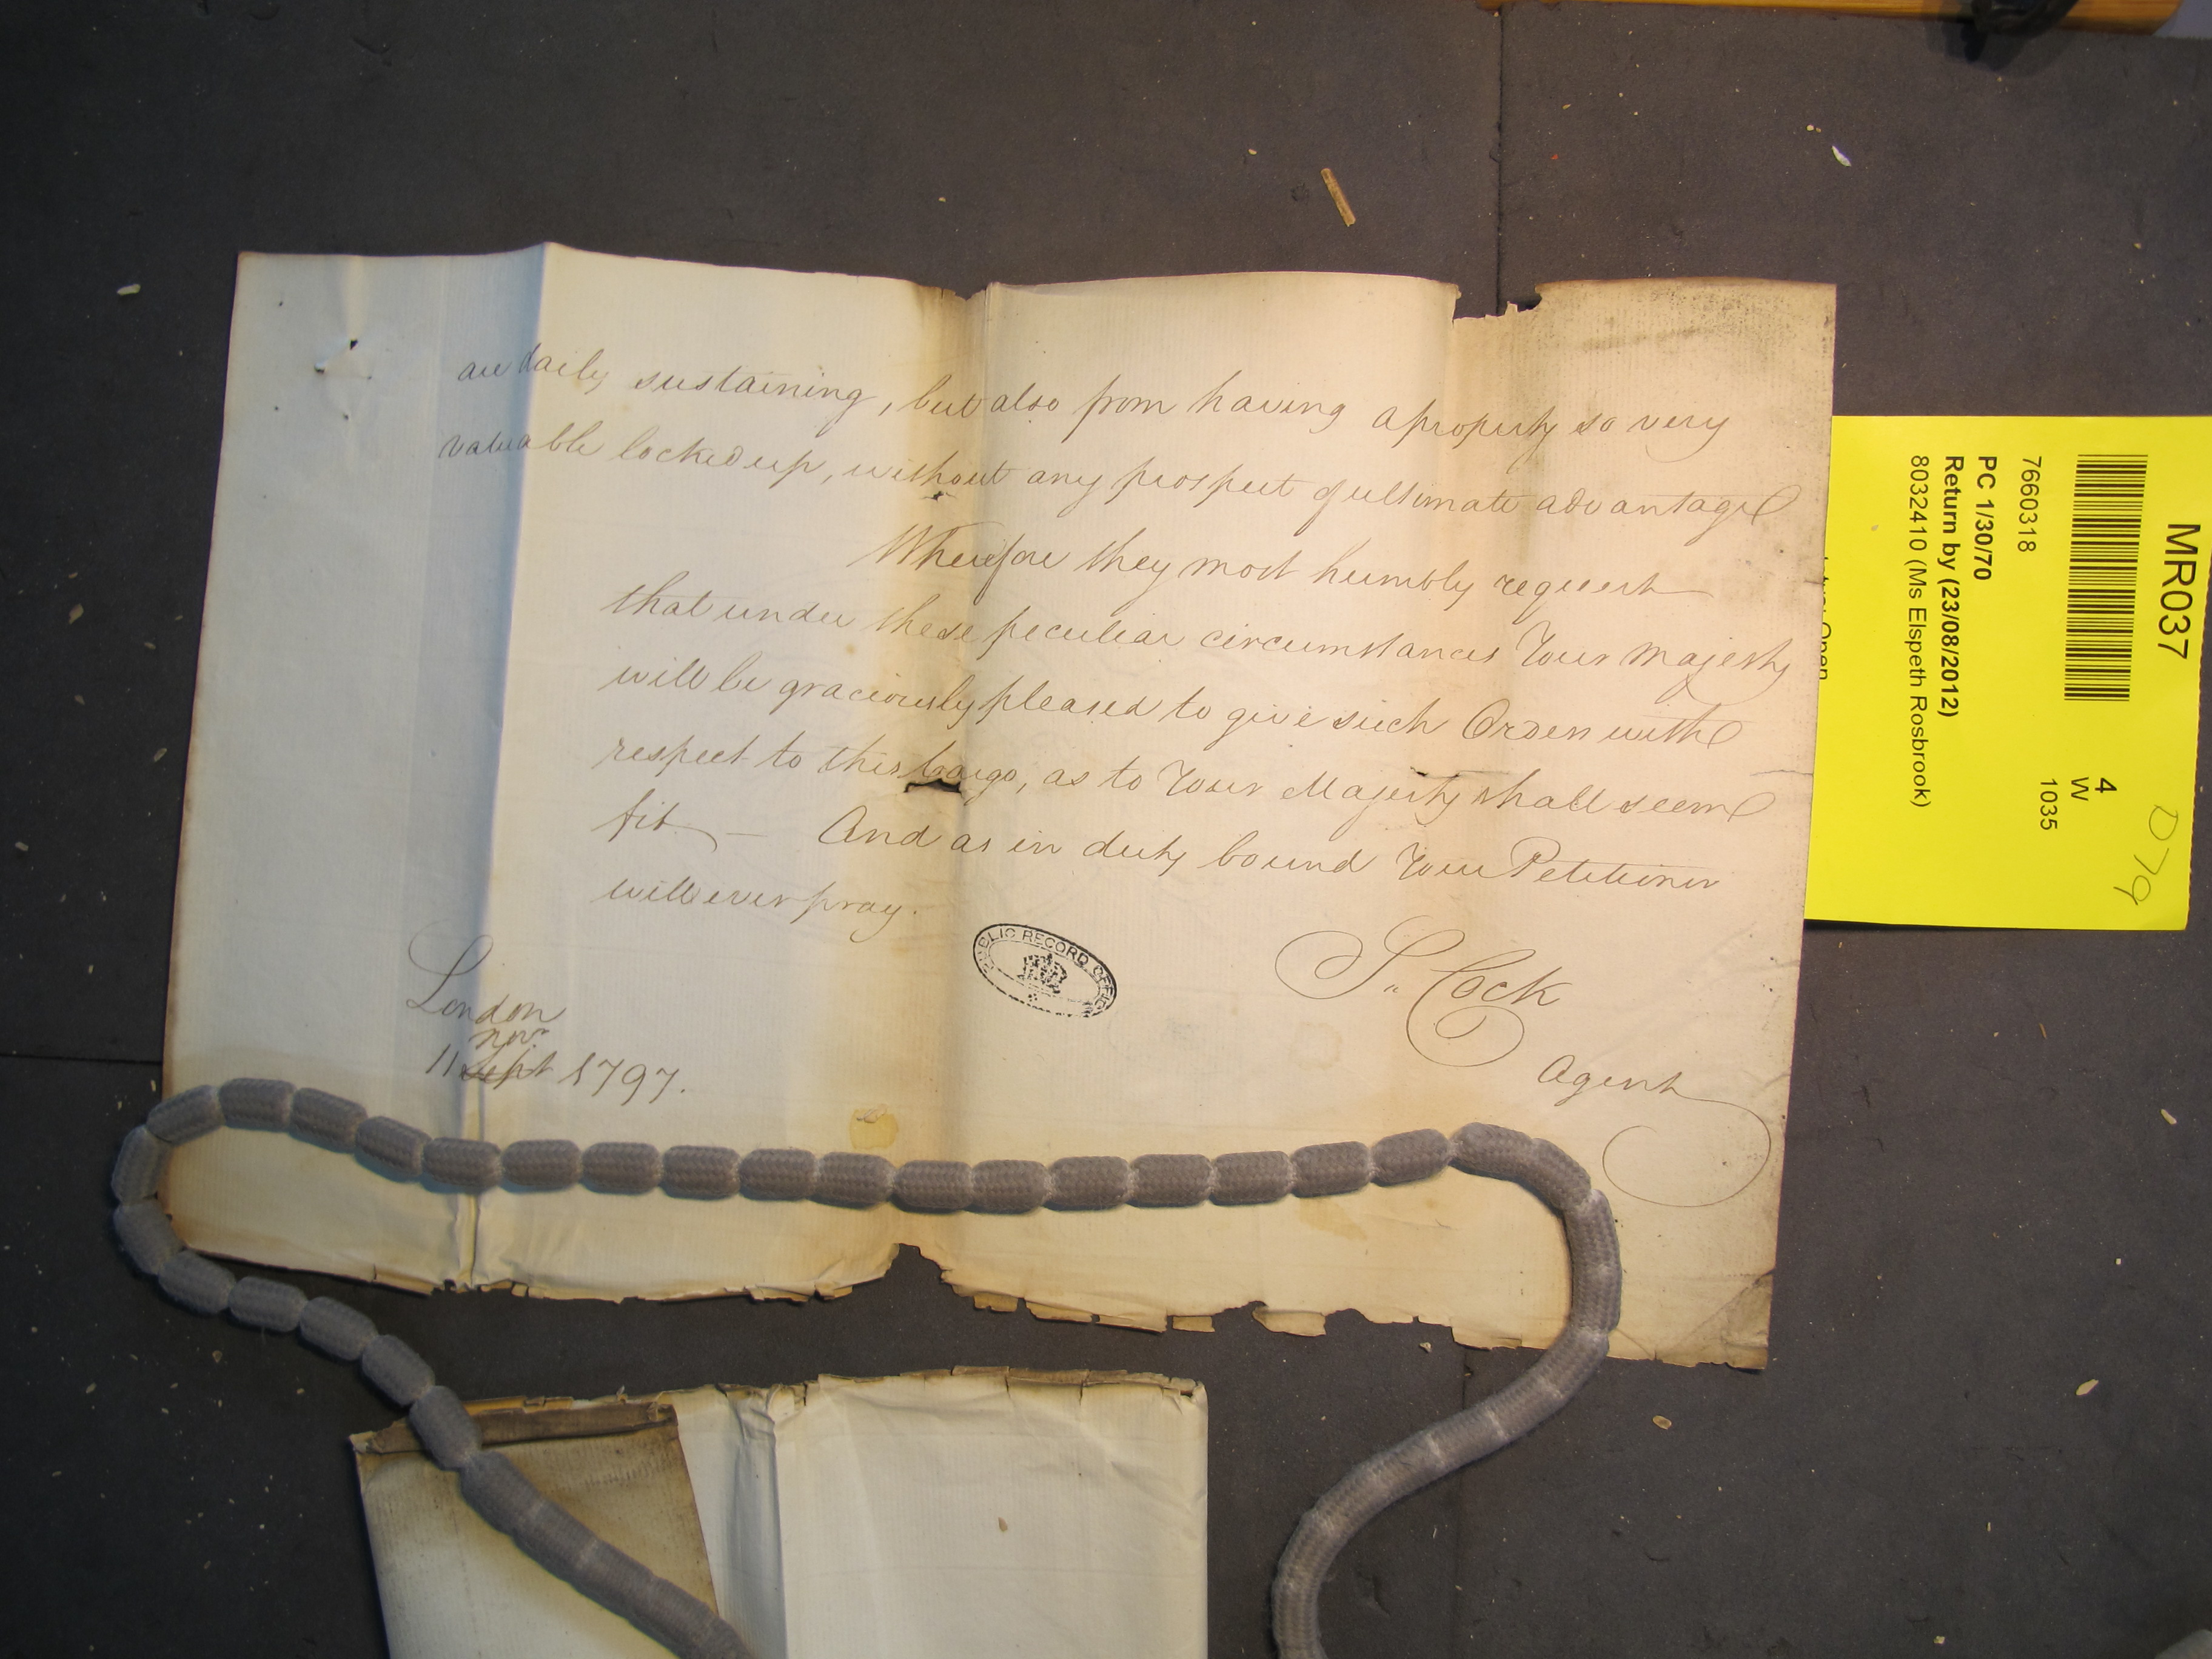 are daily sustaining, but also from having a property so very
valuable locked up, without any prospect of ultimate advantage
Wherefore they most humbly request
that under these peculiar circumstances Your Majesty
will be graciously pleased to give such Orders with
respect to this Cargo, as to Your Majesty shall seem
fit — And as in duty bound Your Petitioner
will ever pray.
S. Cock
Agent
London
Novr
11 Sept 1797.
PUBLIC RECORD OFFICE
MR037
4
W
1035
7660318
PC 1/30/70
Return by (23/08/2012)
8032410 (Ms Elspeth Rosbrook)
Open
D79